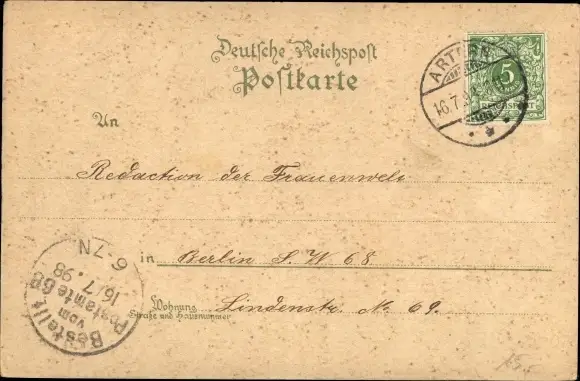 Deutsche Reichspost
Postkarte
ARTERN
16.7.
5
PFENNIG
REICHSPOST
An
Redaction der Frauenwelt
in Berlin S. W 68
Wohnung
Straße und Hausnummer
Lindenstr. No 69.
Bestellt
vom
Postamte 68
16/7.98
6-7N